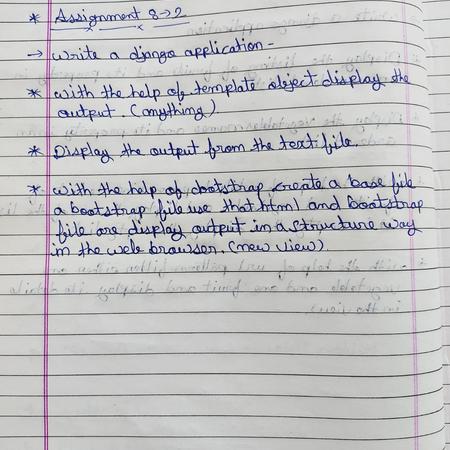 * Assignment 8→2
→ write a django application -
* with the help of template object display the
output. (anything)
* Display the output from the text file.
* with the help of bootstrap create a base file
a bootstrap file use that html and bootstrap
file are display output in a structure way
in the web browser. (new view)